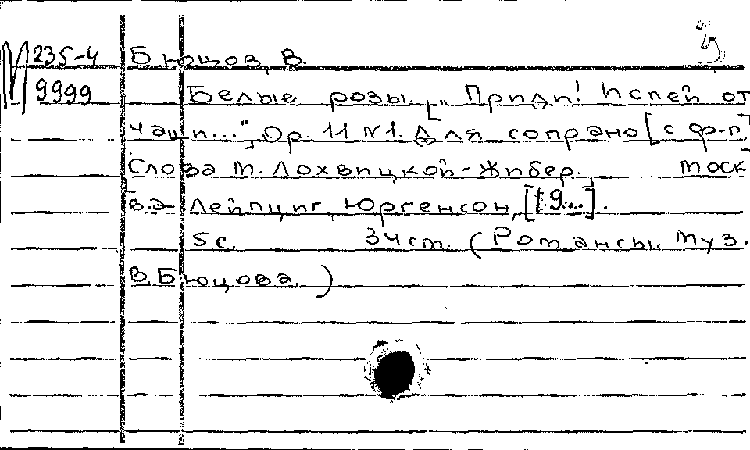 М 235-4 Бюцов, В.
9999 Белые розы. [„Приди! Испей от
чаши...", Op. 11 N1. Для сопрано [с ф-п]
Слова М. Лохвицкой-Жибер. Моск
ва- Лейпциг, Юргенсон, [19...].
5с. 34см. (Романсы. Муз.
В. Бюцова.)